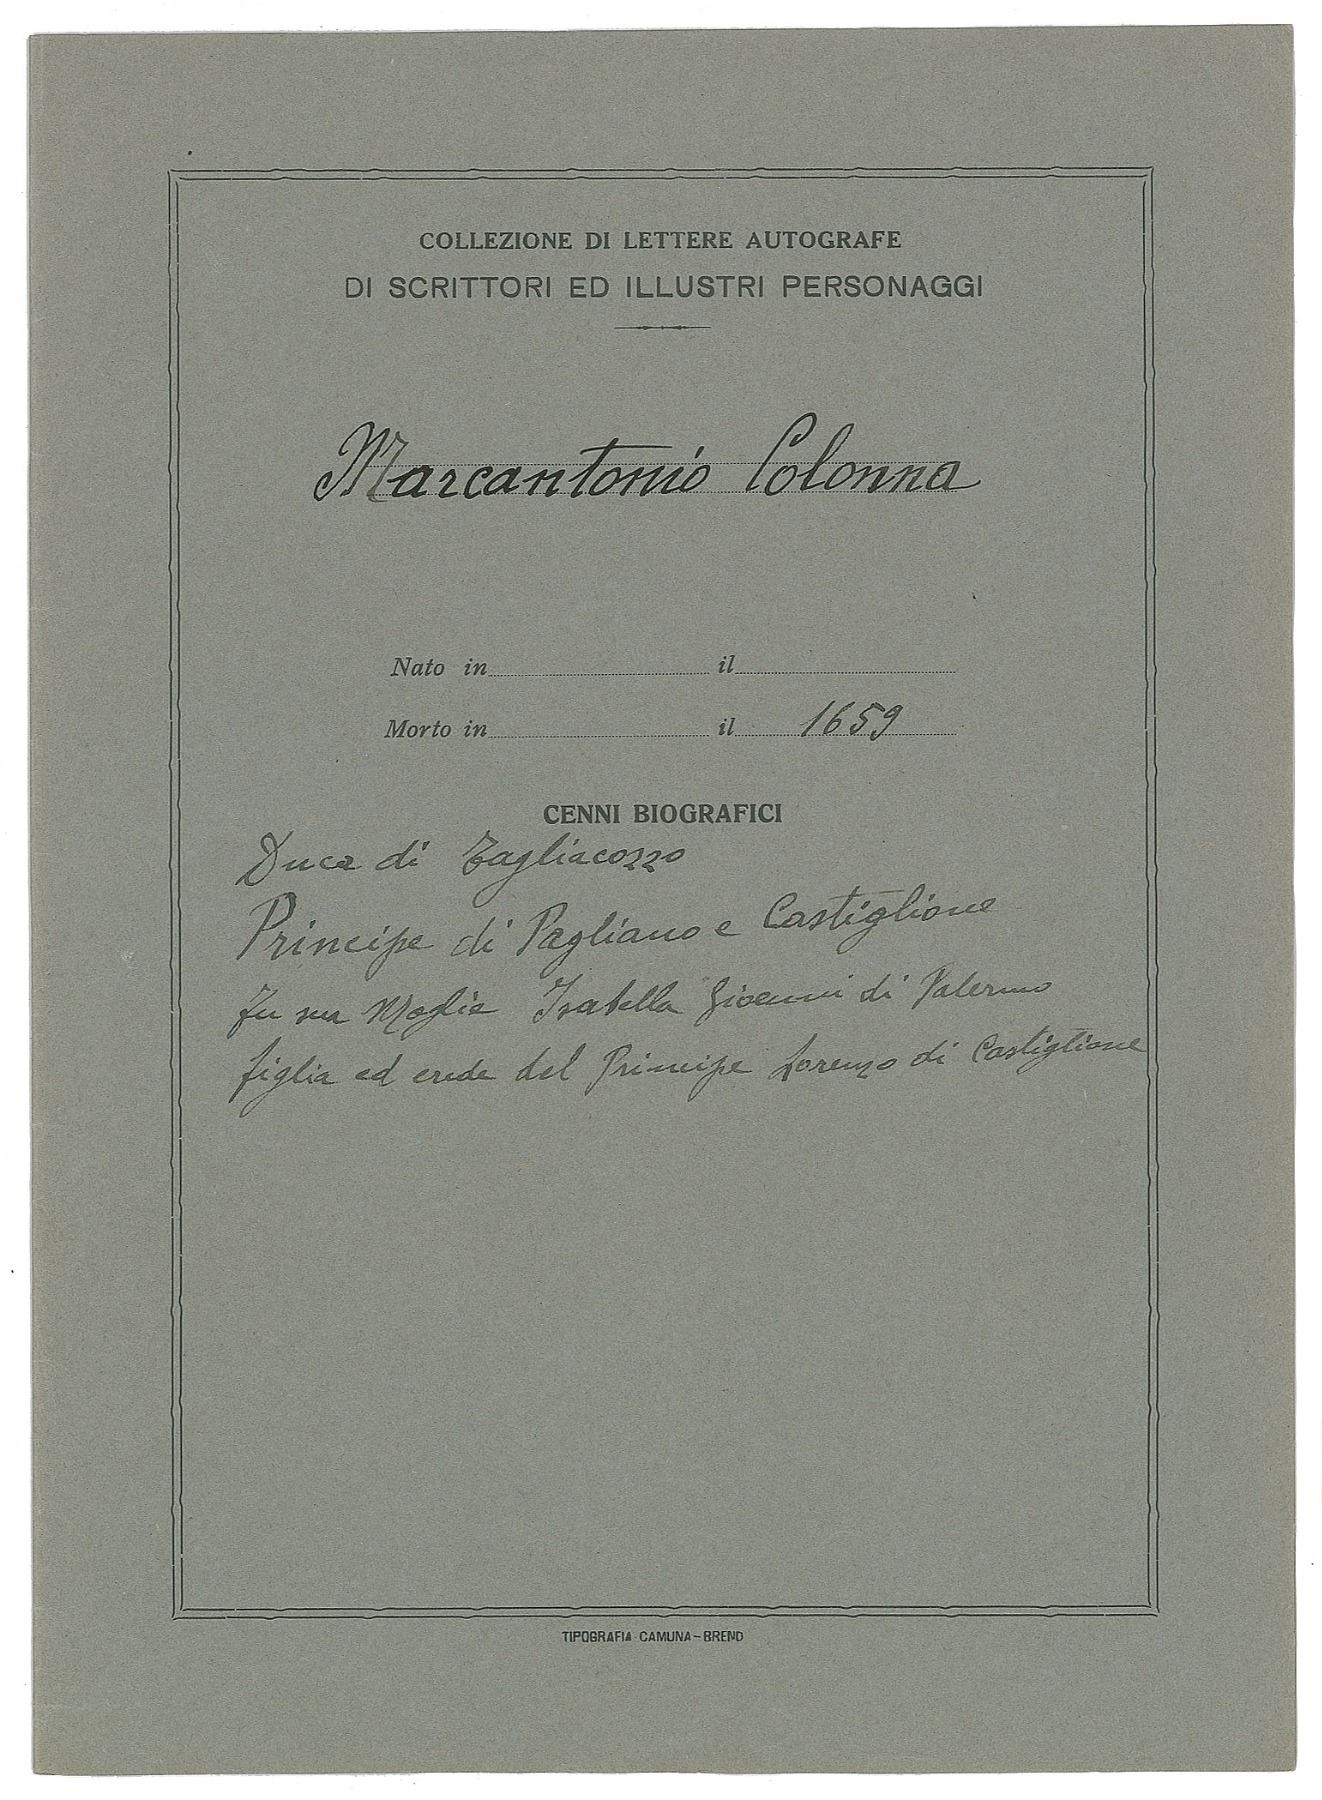 COLLEZIONE DI LETTERE AUTOGRAFE
DI SCRITTORI ED ILLUSTRI PERSONAGGI
Marcantonio Colonna
Nato in il
Morto in il 1659
CENNI BIOGRAFICI
Duca di Tagliacozzo
Principe di Pagliano e Castiglione
Fu sua Moglie Isabella Gioenni di Palermo
figlia ed erede del Principe Lorenzo di Castiglione
TIPOGRAFIA CAMUNA - BRENO